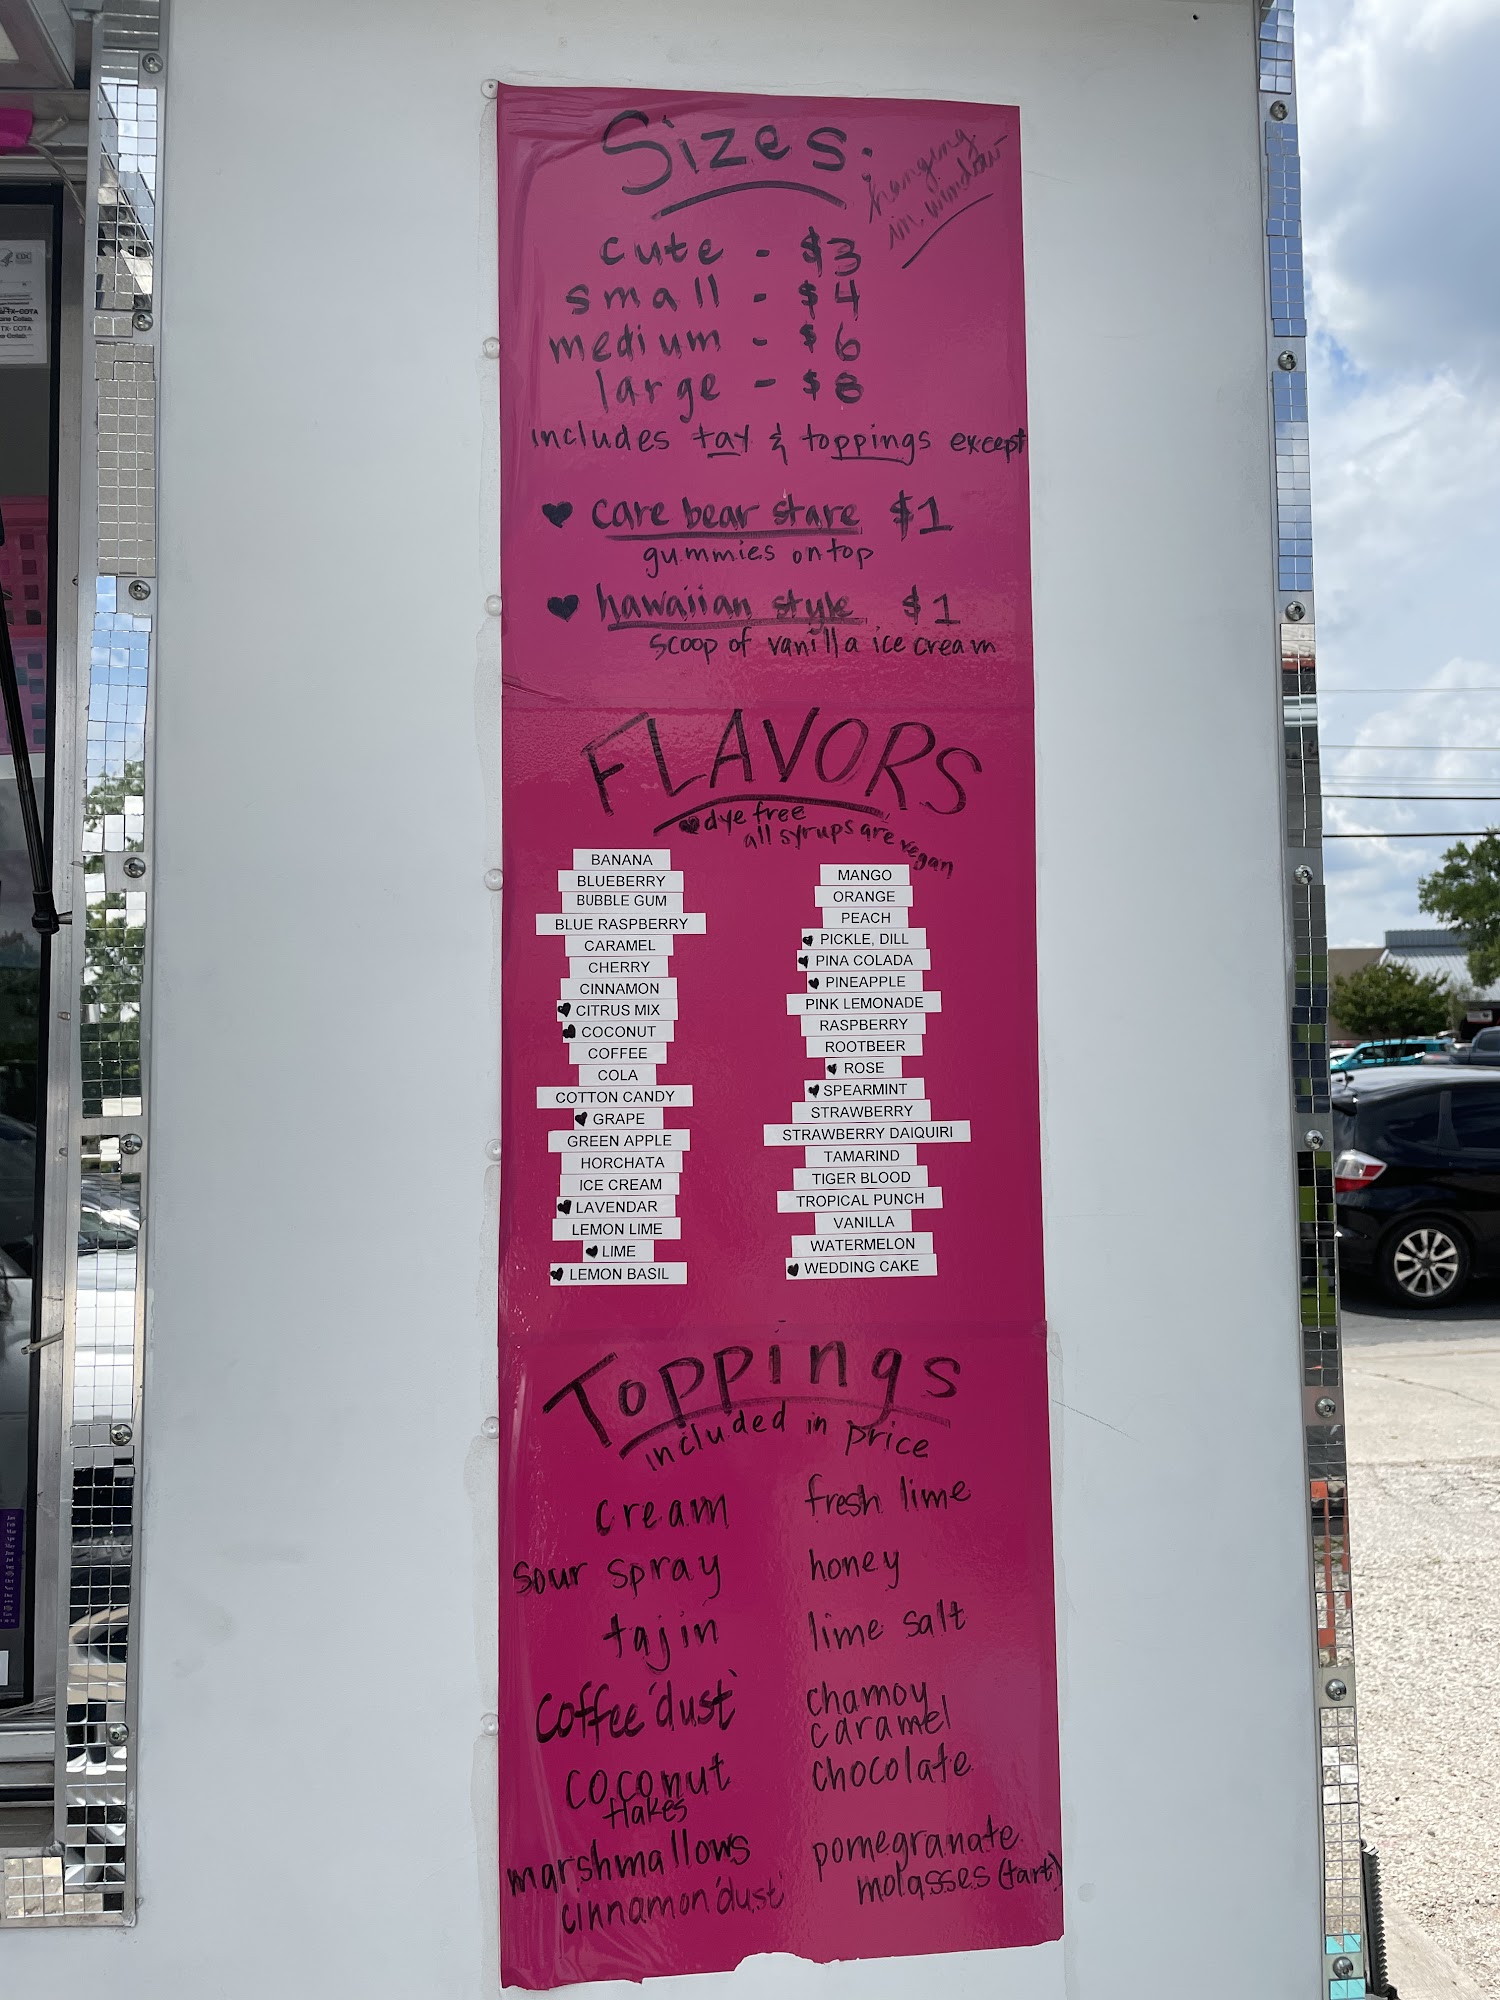 Sizes:
hanging
in window
cute - $3
small - $4
medium - $6
large - $8
includes tax & toppings except
♥ care bear stare $1
gummies on top
♥ hawaiian style $1
scoop of vanilla ice cream
FLAVORS
♥ dye free
all syrups are vegan
BANANA
BLUEBERRY
BUBBLE GUM
BLUE RASPBERRY
CARAMEL
CHERRY
CINNAMON
♥ CITRUS MIX
♥ COCONUT
COFFEE
COLA
COTTON CANDY
♥ GRAPE
GREEN APPLE
HORCHATA
ICE CREAM
♥ LAVENDAR
LEMON LIME
♥ LIME
♥ LEMON BASIL
MANGO
ORANGE
PEACH
♥ PICKLE, DILL
♥ PINA COLADA
♥ PINEAPPLE
PINK LEMONADE
RASPBERRY
ROOTBEER
♥ ROSE
♥ SPEARMINT
STRAWBERRY
STRAWBERRY DAIQUIRI
TAMARIND
TIGER BLOOD
TROPICAL PUNCH
VANILLA
WATERMELON
♥ WEDDING CAKE
Toppings
included in price
cream
sour spray
tajin
coffee 'dust'
coconut
flakes
marshmallows
cinnamon 'dust'
fresh lime
honey
lime salt
chamoy
caramel
chocolate
pomegranate
molasses (tart)